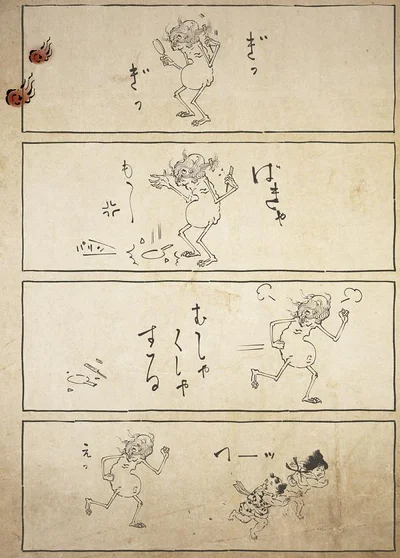 ぎっ
ぎっ
ばきゃ
も〜
パリン
むしゃ
くしゃ
する
えっ